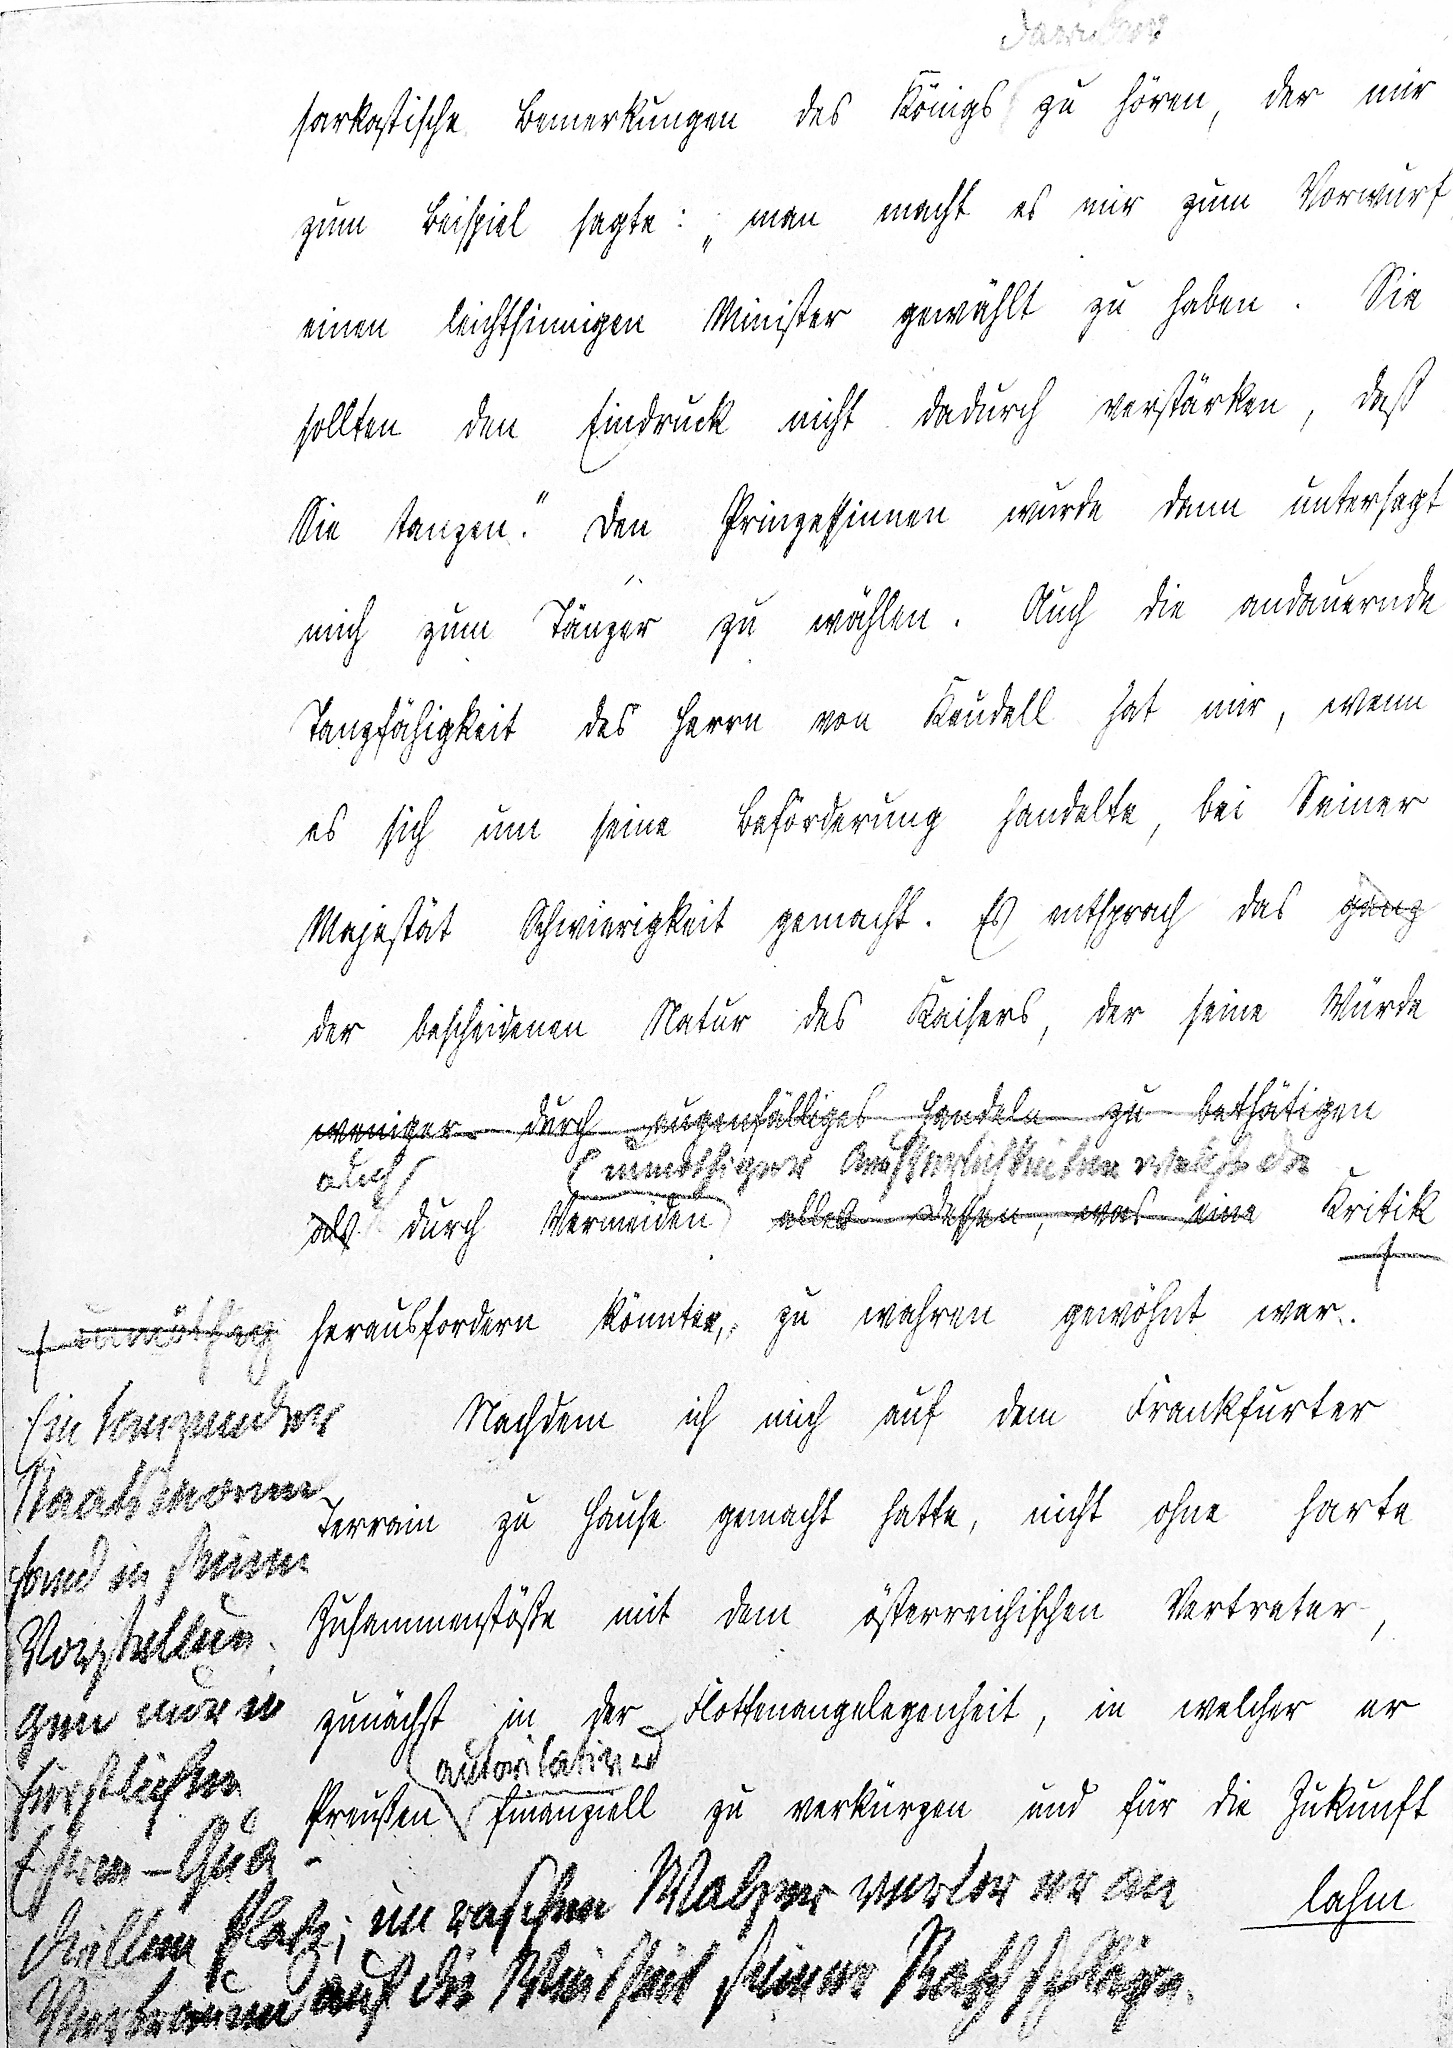 darüber
sarkastische Bemerkungen des Königs zu hören, der mir
zum Beispiel sagte: „man macht es mir zum Vorwurf
einen leichtsinnigen Minister gewählt zu haben. Sie
sollten den Eindruck nicht dadurch verstärken, daß
Sie tanzen.“ Den Prinzessinnen wurde dann untersagt
mich zum Tänzer zu wählen. Auch die andauernde
Tanzfähigkeit des Herrn von Keudell hat mir, wenn
es sich um seine Beförderung handelte, bei Seiner
Majestät Schwierigkeit gemacht. Es entsprach das ganz
der bescheidenen Natur des Kaisers, der seine Würde
weniger durch augenfälliges Handeln zu bethätigen
auch unnöthiger Aeußerlichkeiten welche die
als durch Vermeiden alles dessen, was eine Kritik
herausfordern könnten, zu wahren gewöhnt war.
unnöthig
Ein tanzender
Staatsmann
fand in seinen
Vorstellun
gen nur in
fürstlichen
Ehren-Qua-
drillen Platz; im raschen Walzer verlor er an
Vertrauen auf die Weisheit seiner Rathschläge.
Nachdem ich mich auf dem Frankfurter
Terrain zu Hause gemacht hatte, nicht ohne harte
Zusammenstöße mit dem österreichischen Vertreter,
zunächst in der Flottenangelegenheit, in welcher er
autoritativ und
Preußen finanziell zu verkürzen und für die Zukunft
lahm